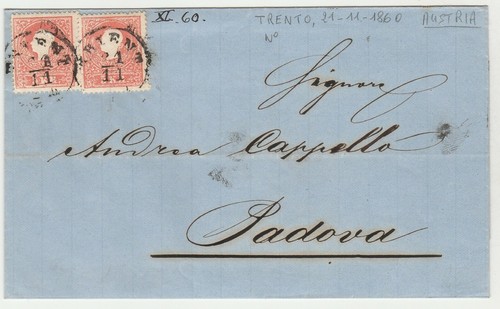 XI. 60. TRENTO, 21-11-1860 AUSTRIA
N° 1
TRIENT
21
11
Signore
Andrea Cappello
Padova